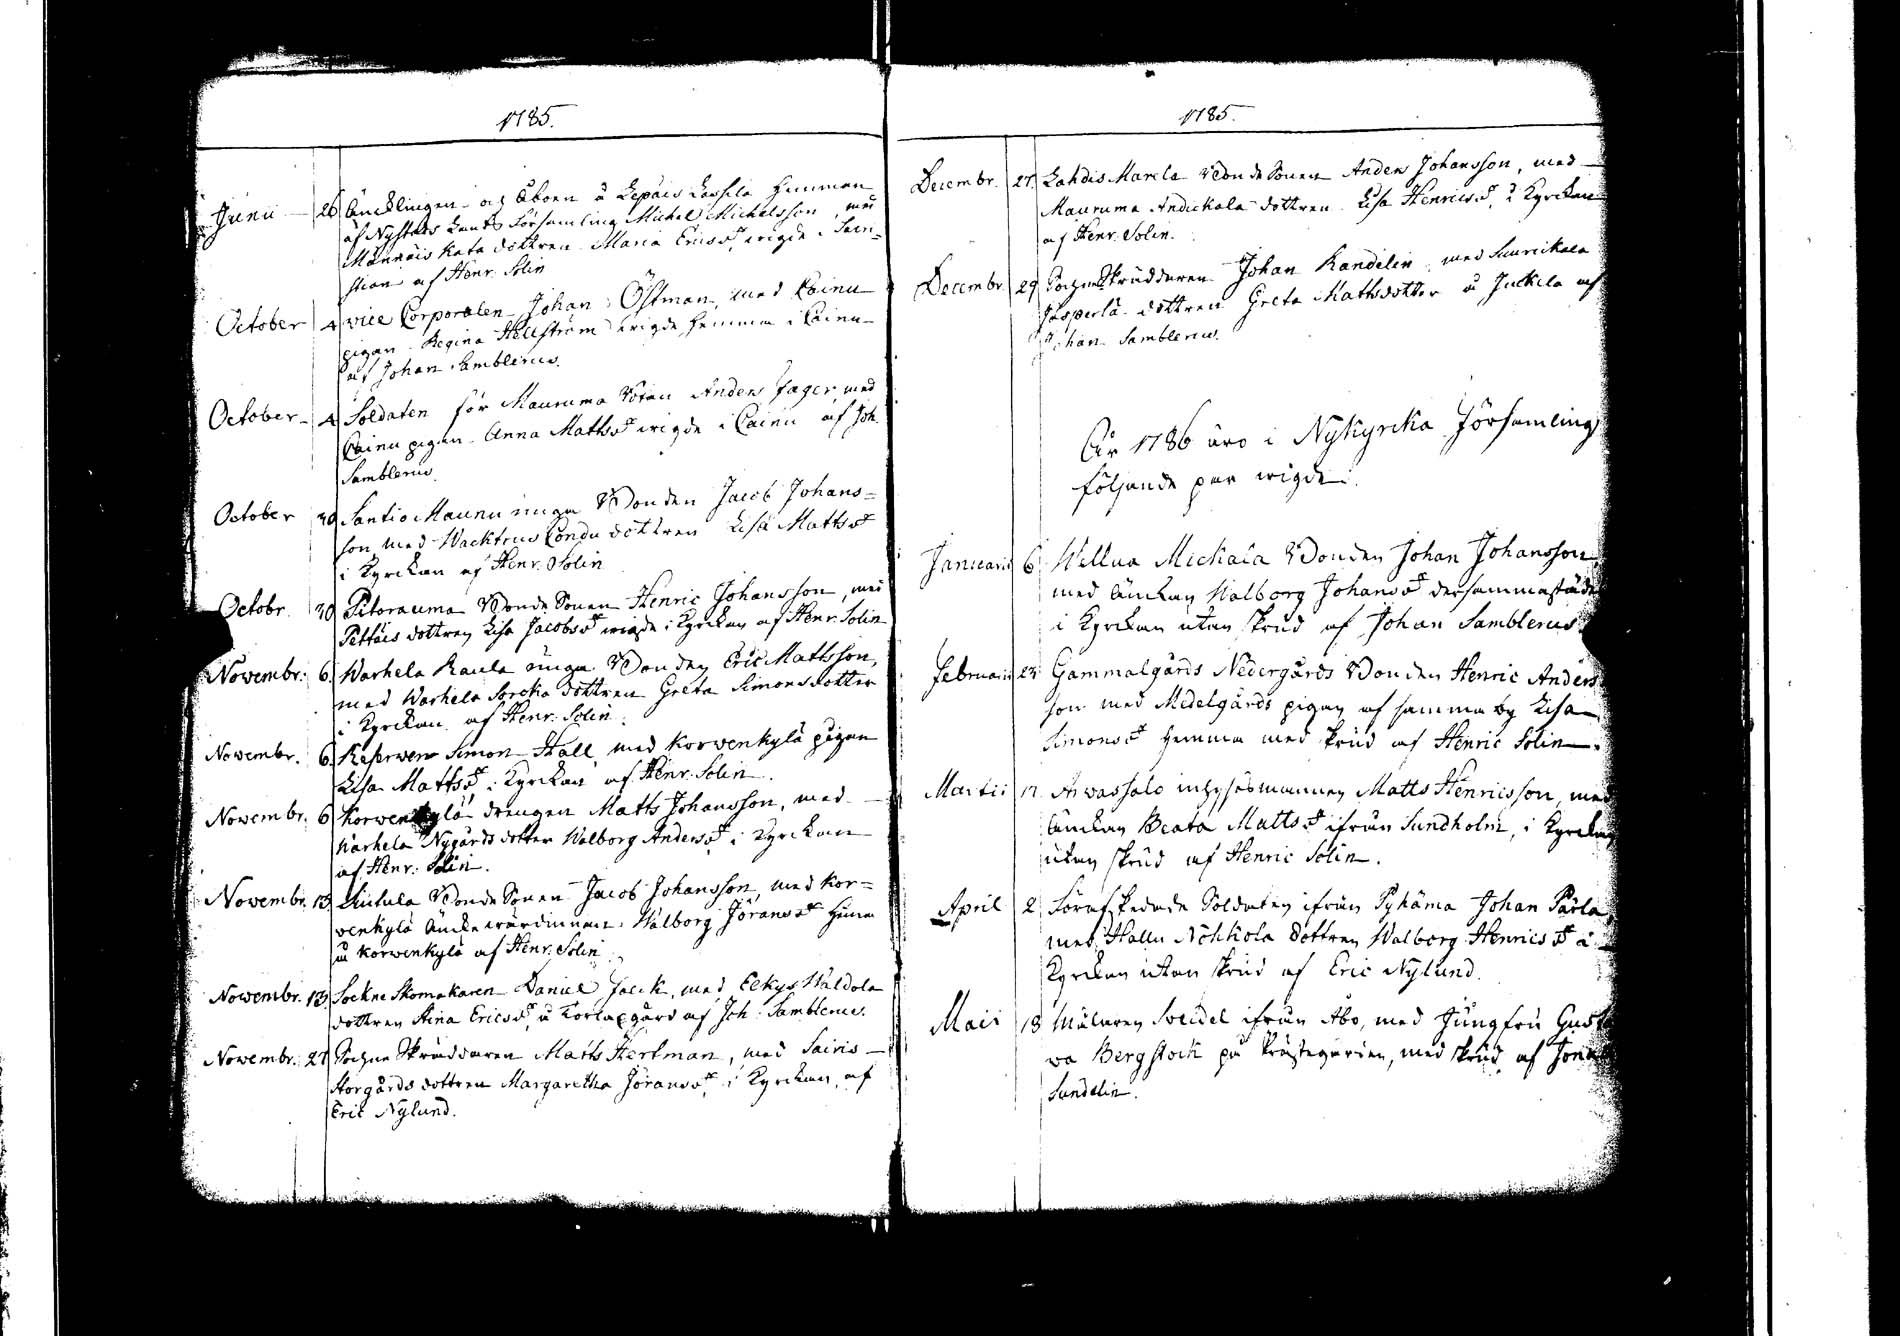 1785.
Junii 26 Änklingen och Åboen å Lepäis Lassila hemman
af Nystads Lands Församling Michel Michelsson, med
Männäis Kata dottren Maria Ericsdr, wigde i Sacri-
stian af Henr. Solin
October 4 vice Corporalen Johan Östman, med Cainu
pigan Regina Hellström wigde hemma i Cainu
af Johan Samblerus.
October 4 Soldaten för Mauruma Roten Anders Jager, med
Cainu pigan Anna Mattsdr wigde i Cainu af Joh.
Samblerus.
October 30 Santio Maunu unga Bonden Jacob Johans=
son, med Wacktrus Condu dottren Lisa Mattsdr
i Kyrckan af Henr. Solin
Octobr. 30 Pitorauma Bonde Sonen Henric Johansson, med
Pettäis dottren Lisa Jacobsdr wigde i Kyrckan af Henr. Solin
Novembr: 6. Warhela Kaula unga Bonden Eric Mattsson,
med Warhela Sorcka dottren Greta Simonsdotter
i Kyrckan af Henr: Solin.
Novembr. 6. Reserven Simon Hall, med Korwenkylä pigan
Lisa Mattsdr i Kyrckan af Henr: Solin.
Novembr: 6 Korwenkylä drengen Matts Johansson, med
Warhela Nygårds dotter Walborg Andersdr i Kyrckan
af Henr: Solin.
Novembr. 13 Bonde Sonen Jacob Johansson, med Kor=
wenkylä Äncke wärdinnan Walborg Jöransdr hemma
å Korwenkylä af Henr. Solin
Novembr. 13 Sockne Skomakaren Daniel Falck, med Elkys Waldola
dottren Stina Ericsdr, å Torlaxgård af Joh: Samblerus.
Novembr: 27 Sockne Skräddaren Matts Hertman, med Sairis
Storgårds dottren Margaretha Jöransdr, i Kyrckan, af
Eric Nylund.
1785.
Decembr. 27. Lahdis Marcla Bonde Sonen Anders Johansson, med
Mauruma Andickala dottren Lisa Henricsdr, i Kyrckan
af Henr. Solin.
Decembr. 29 Sockne Skräddaren Johan Randelin, med Saurickala
Jesperlä dottren Greta Mattsdotter å Juckela af
Johan Samblerus.
År 1786 äro i Nykyrka Församling
följande par wigde.
Januarii 6 Wellua Mickala Bonden Johan Johansson
med Änckan Walborg Johansdr dersammastädes
i Kyrckan utan skrud af Johan Samblerus.
Februarii 23 Gammalgårds Nedergårds Bonden Henric Anders
son med Medelgårds pigan af samma by Lisa
Simonsdr hemma med skrud af Henric Solin.
Martii 12 Arwassalo inhysesmannen Matts Henricsson, med
Änckan Beata Mattsdr ifrån Sundholm, i Kyrckan
utan skrud af Henric Solin.
April 2 Förafskedade Soldaten ifrån Pyhäma Johan Pärla,
med Hallu Nohkola dottren Walborg Henricsdr i
Kyrckan utan skrud af Eric Nylund.
Maii 18 Målaren Sveidel ifrån Åbo, med Jungfru Gusta
va Bergstock på Prästegården, med skrud af Jonas
Sundelin.